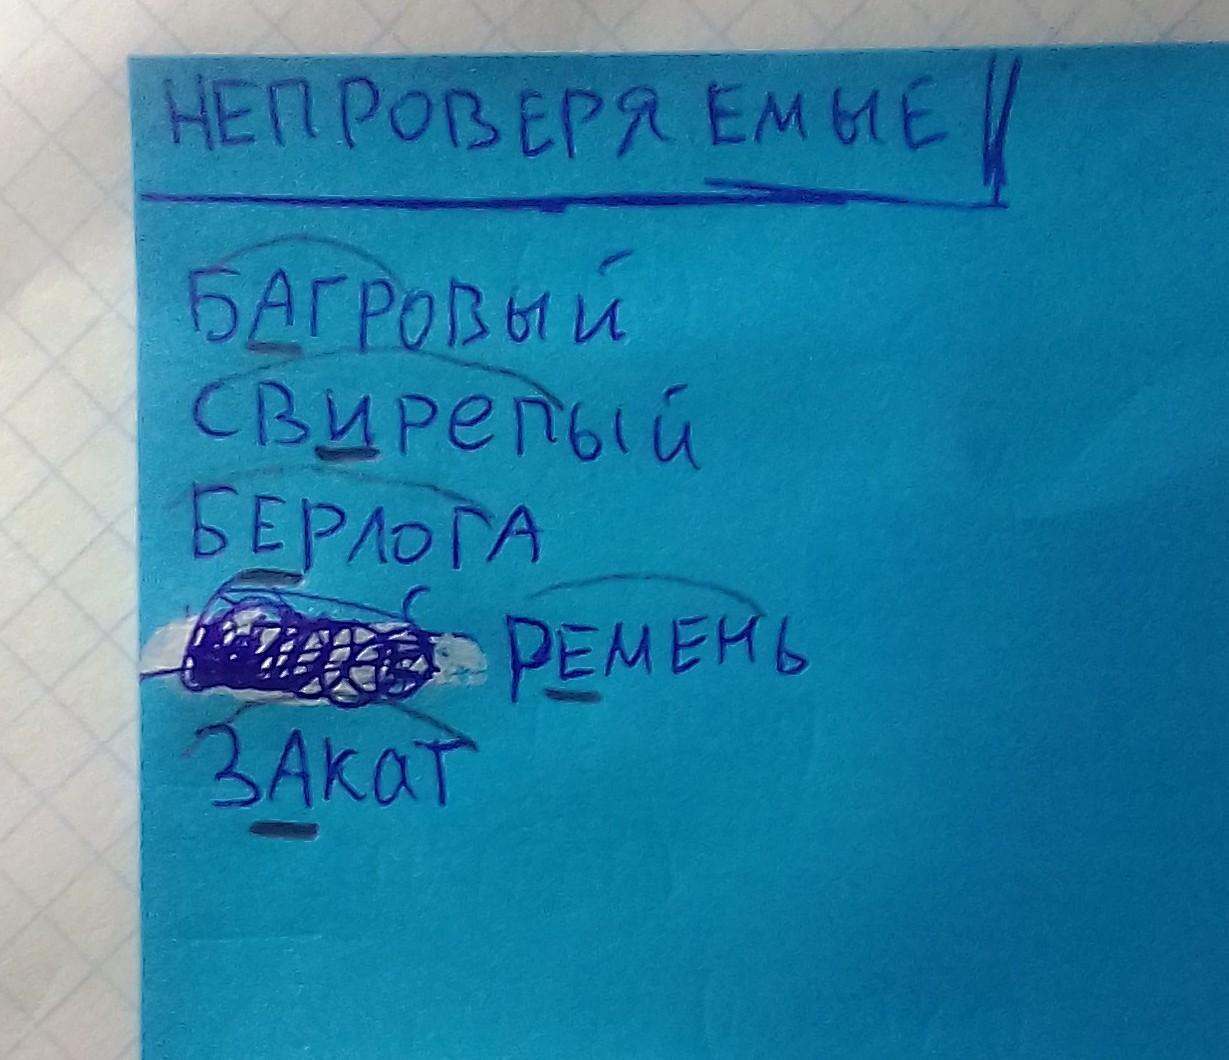 НЕПРОВЕРЯЕМЫЕ
БАГРОВЫЙ
СВИРЕПЫЙ
БЕРЛОГА
РЕМЕНЬ
ЗАКАТ